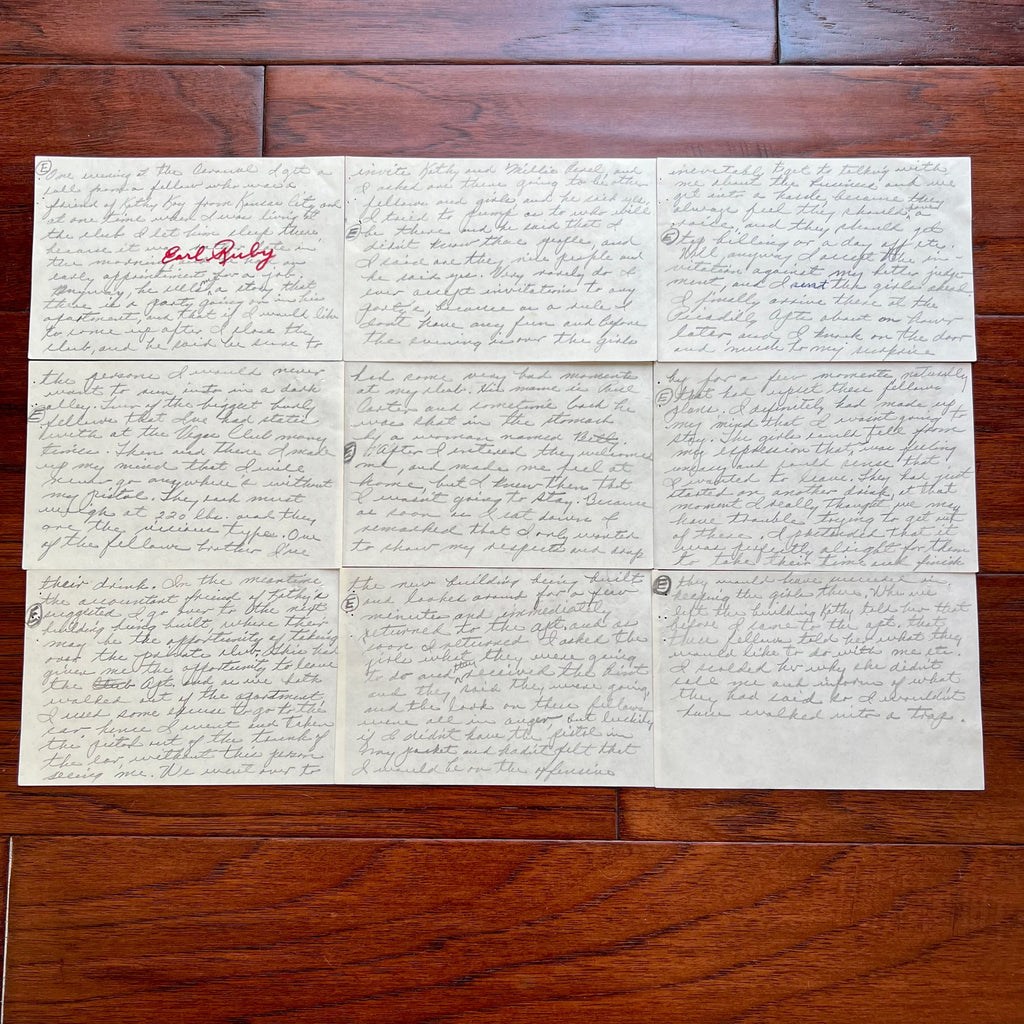 E
One evening at the Carousel I got a
call from a fellow who was a
friend of Kathy Kay from Kansas City, and
at one time when I was living at
the club I let him sleep there
because it was late in
the morning an
early appointment for a job.
Anyway he tells a story that
there is a party going on in his
apartment, and that if I would like
to come up after I close the
club, and he said be sure to
Earl Ruby
invite Kathy and Millie and
I asked are there going to be other
fellows and girls and he said yes.
I tried to pump as to who will
E
be there and he said that I
didn't know those people, and
I said are they nice people and
he said yes. Very rarely do I
ever accept invitations to any
party's, because as a rule I
don't have any fun and before
the evening is over the girls
inevitably get to talking with
me about the business and we
get into a hassle because they
always feel they should a
raise, and they should get
E
top billing or a day off etc.
Well anyway, I accept the in-
vitation against my better judge
ment, and I sent the girls ahead.
I finally arrive there at the
Piccadilly Apts about an hour
later and I knock on the door
and much to my surprise
the persons I would never
want to run into in a dark
alley. Two of the biggest burly
E
fellows that I've had static
with at the Vegas Club many
times. Then and there I made
up my mind that I will
never go anywhere's without
my pistol. They each must
weigh at 220 lbs. and they
are the vicious type. One
of the fellows brother I've
had some very bad moments
at my club. His name is
Carter and sometime back he
was shot in the stomach
by a woman named
E
After I entered they welcomed
me, and made me feel at
home, but I knew then that
I wasn't going to stay. Because
as soon as I sat down I
remarked that I only wanted
to show my respects and drop
by for a few moments naturally
E
that had upset these fellows
plans. I definitely had made up
my mind that I wasn't going to
stay. The girls could tell from
my expression that, was feeling
uneasy and could sense that
I wanted to leave. They had just
started on another drink, at that
moment I really thought we may
have trouble trying to get out
of there. I pretended that it
was perfectly alright for them
to take their time and finish
their drink. In the meantime
the accountant friend of Kathy's
E
suggested I go over to the next
building being built, where their
may be the opportunity of taking
over the private club. This had
given me the opportunity to leave
the Club Apt. and as we both
walked out of the apartment,
I used some excuse to go to the
car, hence I went and taken
the pistol out of the trunk of
the car, without this person
seeing me. We went over to
the new building being built
E
and looked around for a few
minutes and immediately
returned to the apt. and as
soon I returned I asked the
girls what they were going
to do and they received the hint
and they said they were going,
and the look on these fellows
were all in anger but luckily
if I didn't have the pistol in
my pocket and hadn't felt that
I would be on the offensive
E
they would have succeeded in
keeping the girls there. When we
left the building Kathy told me that
before I came to the apt. that
these fellows told her what they
would like to do with me etc.
I scolded her why she didn't
tell me and inform of what
they had said so I wouldn't
have walked into a trap.